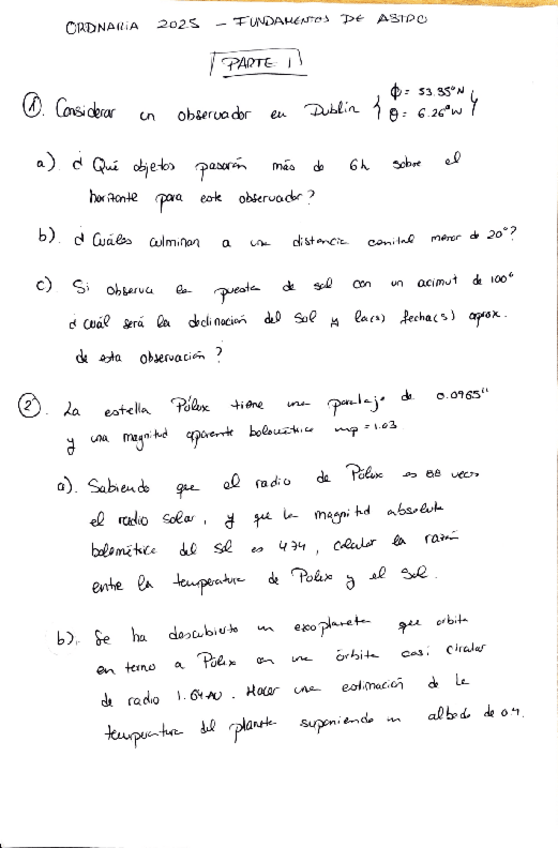 ORDNARIA 2025 - FUNDAMENTOS DE ASTRO
PARTE 1
①. Considerar un observador en Dublin { ϕ = 53.35°N
θ = 6.26°W }
a). ¿ Qué objetos pasarán más de 6h sobre el
horizonte para este observador?
b). ¿ Cuáles culminan a una distancia cenital menor de 20°?
c). Si observa la puesta de sol con un acimut de 100°
¿ cuál será la declinación del Sol y la(s) fecha(s) aprox.
de esta observación?
②. La estrella Pólux tiene una paralaje de 0.0965"
y una magnitud aparente bolométrica mp = 1.03
a). Sabiendo que el radio de Pólux es 8.8 veces
el radio solar, y que la magnitud absoluta
bolométrica del sol es 4.74, calcular la razón
entre la temperatura de Pólux y el Sol.
b). Se ha descubierto un exoplaneta que orbita
en torno a Pólux en una órbita casi circular
de radio 1.64 AU. Hacer una estimación de la
temperatura del planeta suponiendo un albedo de 0.4.